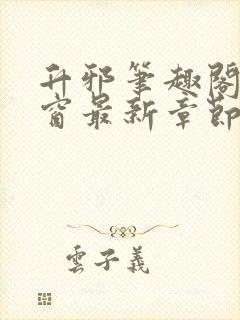 升邪筆趣閣
窗最新章節
雲子義